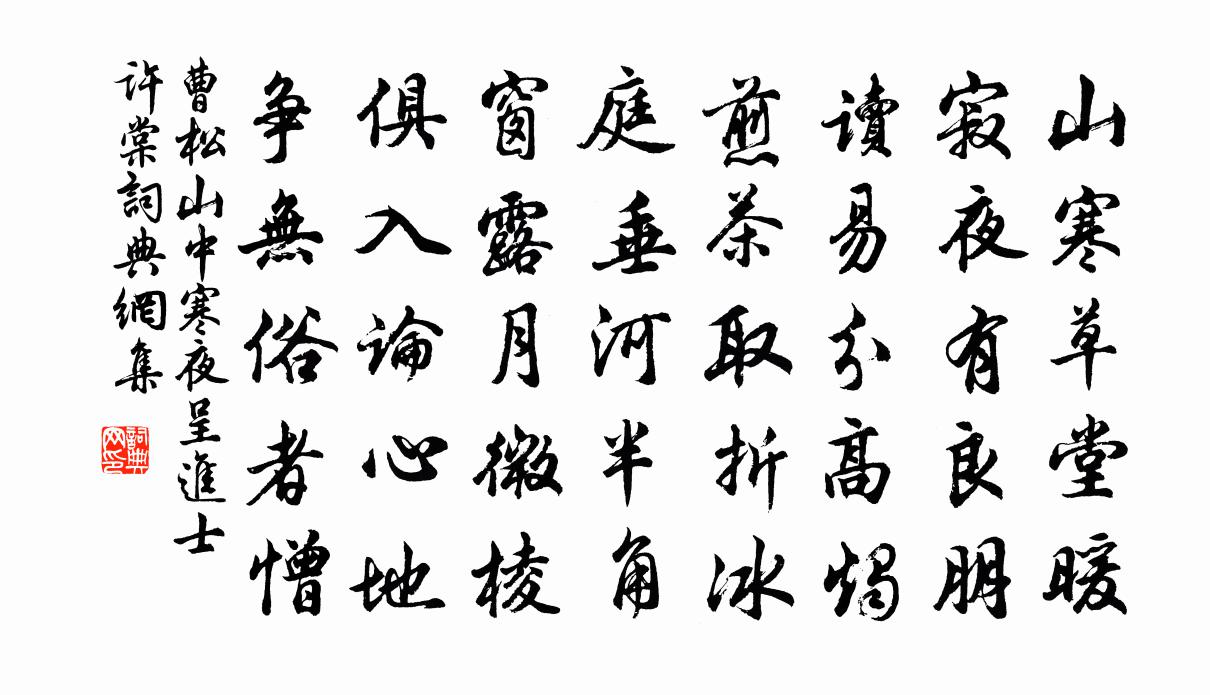 山寒草堂暖
寂夜有良朋
讀易分高燭
煎茶取折冰
庭垂河半角
窗露月微棱
俱入論心地
爭無俗者憎
曹松山中寒夜呈進士
許棠詞典網集
詞典网印